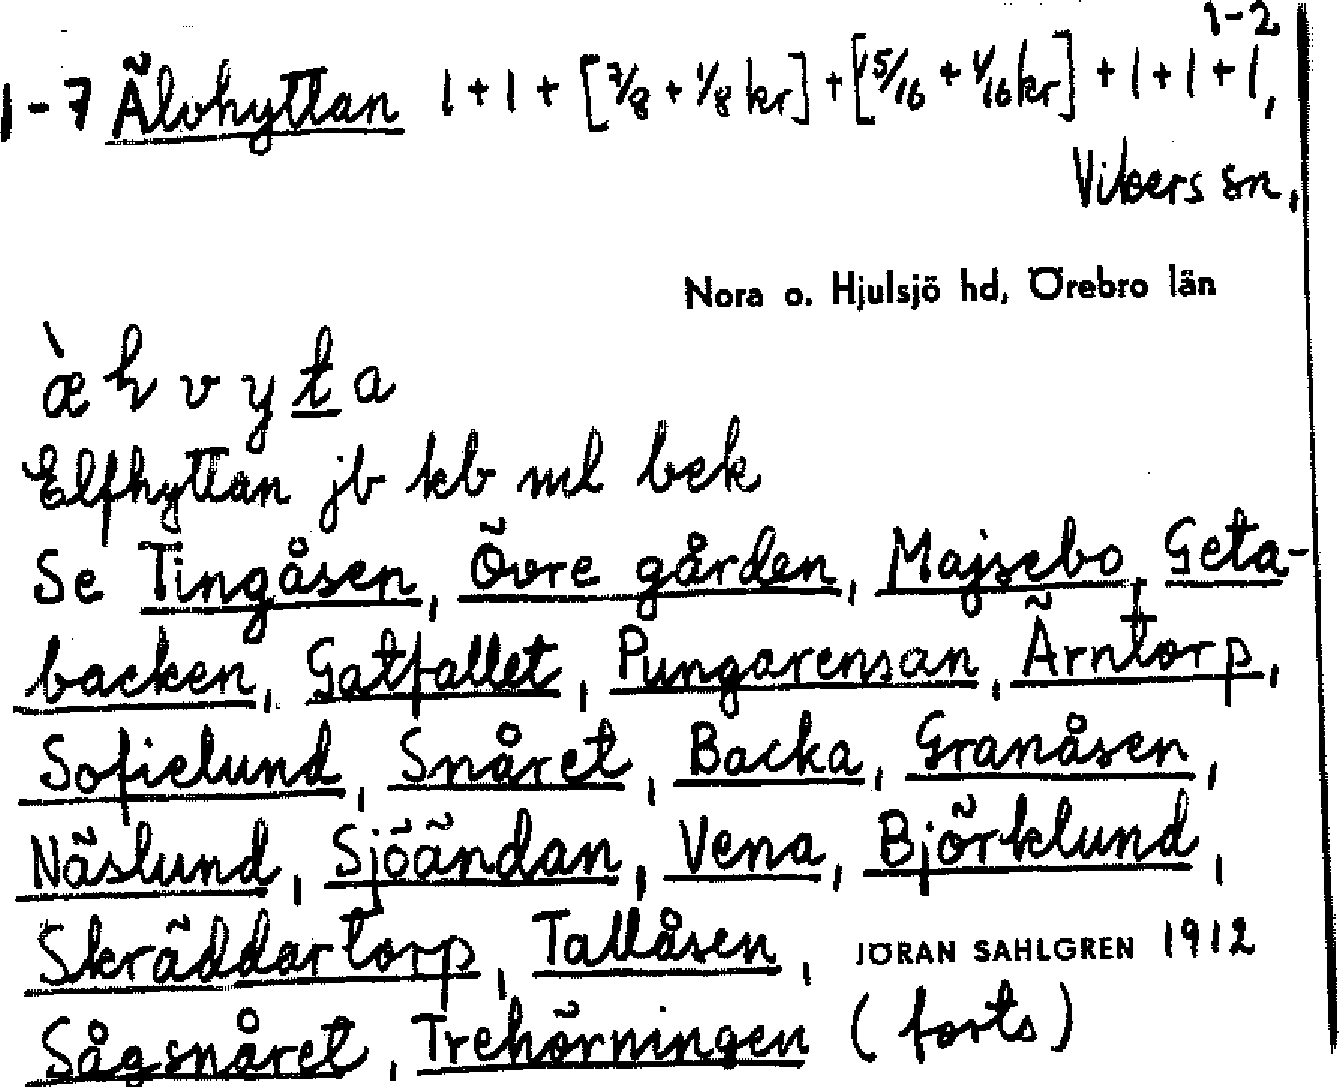 1-2
1-7 Älvhyttan 1+1+ [7/8 + 1/8 kr] + [15/16 + 1/16 kr] + 1+1+1,
Vikers sn,
Nora o. Hjulsjö hd, Örebro län
æ̀ h v y t a
Elfhyttan jb kb ml bek
Se Tingåsen, Övre gården, Majsebo, Geta-
backen, Gatfallet, Pungarensan, Ärntorp,
Sofielund, Snåret, Backa, Granåsen,
Näslund, Sjöändan, Vena, Björklund,
Skräddartorp, Tallåsen, JÖRAN SAHLGREN 1912
Sågsnåret, Trehörningen (forts)